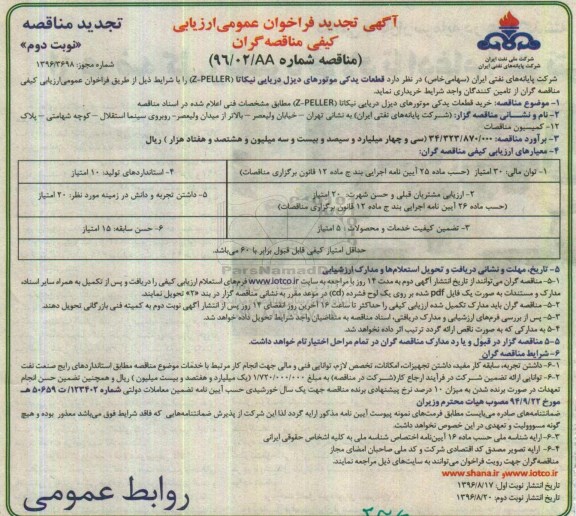 آگهی تجدید فراخوان عمومی ارزیابی
کیفی مناقصه‌گران
(مناقصه شماره ۹۶/۰۲/AA)
شرکت ملی نفت ایران
شرکت پایانه‌های نفتی ایران
تجدید مناقصه
«نوبت دوم»
شماره مجوز: ۱۳۹۶/۳۶۹۸
شرکت پایانه‌های نفتی ایران (سهامی‌خاص) در نظر دارد قطعات یدکی موتورهای دیزل دریایی نیکاتا (Z-PELLER) را با شرایط ذیل از طریق فراخوان عمومی‌ارزیابی کیفی
مناقصه گران از تامین کنندگان واجد شرایط خریداری نماید.
۱- موضوع مناقصه: خرید قطعات یدکی موتورهای دیزل دریایی نیکاتا (Z-PELLER) مطابق مشخصات فنی اعلام شده در اسناد مناقصه
۲- نام و نشانــی مناقصه گزار: (شــرکت پایانه‌های نفتی ایران) به نشانی تهران – خیابان ولیعصر – بالاتر از میدان ولیعصر- روبروی سینما استقلال – کوچه شهامتی – پلاک
۱۲- کمیسیون مناقصات
۳- برآورد مناقصه: ۳۴/۳۲۳/۸۷۰/۰۰۰ (سی و چهار میلیارد و سیصد و بیست و سه میلیون و هشتصد و هفتاد هزار) ریال
۴- معیارهای ارزیابی کیفی مناقصه گران:
۱- توان مالی: ۲۰ امتیاز (حسب ماده ۲۵ آیین نامه اجرایی بند ج ماده ۱۲ قانون برگزاری مناقصات)
۴- استانداردهای تولید: ۱۰ امتیاز
۲- ارزیابی مشتریان قبلی و حسن شهرت: ۲۰ امتیاز
(حسب ماده ۲۶ آیین نامه اجرایی بند ج ماده ۱۲ قانون برگزاری مناقصات)
۵- داشتن تجربه و دانش در زمینه مورد نظر: ۲۰ امتیاز
۳- تضمین کیفیت خدمات و محصولات: ۵ امتیاز
۶- حسن سابقه: ۱۵ امتیاز
حداقل امتیاز کیفی قابل قبول برابر با ۶۰ می‌باشد.
۵- تاریخ، مهلت و نشانی دریافت و تحویل استعلام‌ها و مدارک ارزشیابی
۵-۱- مناقصه گران می‌توانند از تاریخ انتشار آگهی نوبت دوم به مدت ۱۴ روز با مراجعه به سایت www.iotco.ir فرم‌های استعلام ارزیابی کیفی را دریافت و پس از تکمیل به همراه سایر اسناد،
مدارک و مستندات به صورت یک فایل pdf شده بر روی یک لوح فشرده (cd) در موعد مقرر به نشانی مناقصه گزار در بند «۲» تحویل نمایند.
۵-۲- مناقصه گران باید مدارک تکمیل شده ارزیابی کیفی را حداکثر تا ساعت ۱۶ آخرین روز انقضای ۱۴ روز پس از انتشار آگهی نوبت دوم به کمیته فنی بازرگانی تحویل دهند.
۵-۳- پس از بررسی فرم‌های ارزشیابی و مدارک دریافتی، اسناد مناقصه به متقاضیان واجد شرایط تحویل داده خواهد شد.
۵-۴ به مدارکی که به صورت ناقص ارائه گردد ترتیب اثر داده نخواهد شد.
۵-۵ مناقصه گزار در قبول و یا رد مدارک مناقصه گران در تمام مراحل اختیار تام خواهد داشت.
۶- شرایط مناقصه گران
۶-۱- داشتن تجربه، سابقه کار مفید، داشتن تجهیزات، امکانات، تخصص لازم، توانایی فنی و مالی جهت انجام کار مرتبط با خدمات موضوع مناقصه مطابق استانداردهای رایج صنعت نفت
۶-۲- توانایی ارائه تضمین شــرکت در فرآیند ارجاع کار(شــرکت در مناقصه) به مبلغ ۱/۷۲۰/۰۰۰/۰۰۰ (یک میلیارد و هفتصد و بیست میلیون) ریال و همچنین تضمین حسن انجام
تعهدات در صورت برنده شدن به میزان ۱۰ درصد نرخ پیشنهادی برنده مناقصه جهت یک سال خورشیدی حسب آیین نامه تضمین معاملات دولتی شماره ۱۲۳۴۰۲/ت ۵۰۶۵۹ هـ
مورخ ۹۴/۹/۲۲ مصوب هیات محترم وزیران
ضمانتنامه‌های صادره می‌بایست مطابق فرمت‌های نمونه پیوست آیین نامه مذکور ارایه گردد لذا این شرکت از پذیرش ضمانتنامه‌هایی که فاقد شرایط فوق می‌باشد معذور بوده و هیچ
گونه مسوولیت و تعهدی در این خصوص نخواهد داشت.
۶-۳- ارایه شناسه ملی حسب ماده ۱۶ آیین‌نامه اختصاص شناسه ملی به کلیه اشخاص حقوقی ایرانی
۶-۴- ارایه تصویر مصدق کد اقتصادی شرکت و کد ملی صاحبان امضای مجاز
مناقصه‌گران جهت رویت فراخوان می‌توانند به سایت‌های ذیل مراجعه نمایند.
www.shana.ir و www.iotco.ir
تاریخ انتشار نوبت اول: ۱۳۹۶/۸/۱۷
تاریخ انتشار نوبت دوم: ۱۳۹۶/۸/۲۰
روابط عمومی